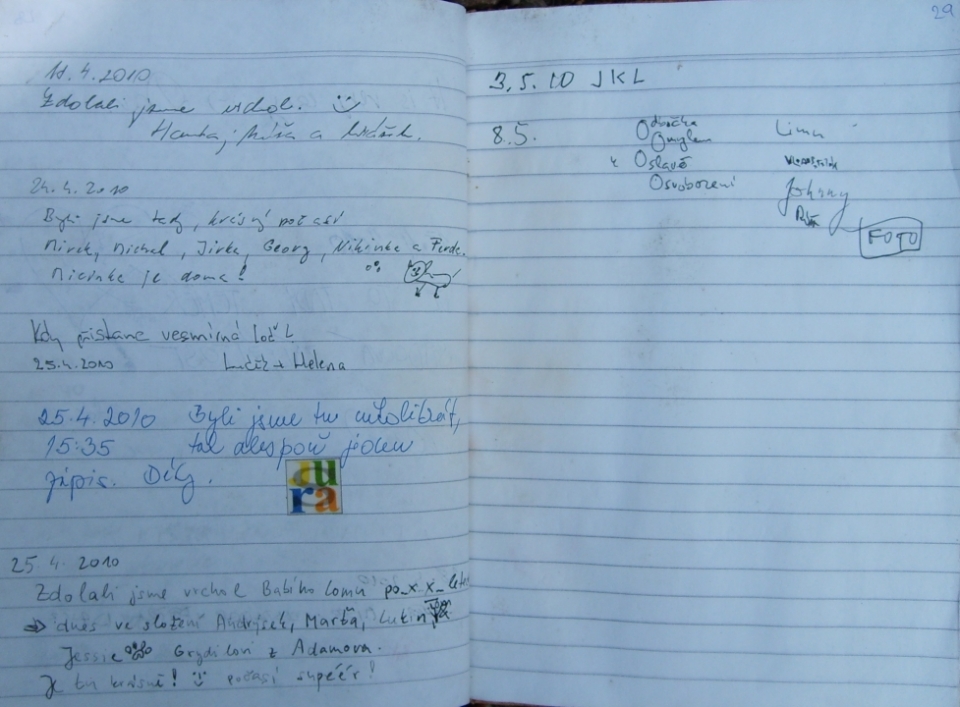 11.4.2010
Zdolali jsme vrchol. :)
Hanka, Míša a
24.4.2010
Byli jsme tady, krásný počasí
Mirek, Michal, Jirka, Georg, Nikinka a Ferda.
je doma!
Kdy přistane vesmírná loď
25.4.2010 Luděk + Helena
25.4.2010 Byli jsme tu několikrát,
15:35 tak alespoň jeden
zápis. Díky.
aura
25.4.2010
Zdolali jsme vrchol Babího lomu po_x x_
⇒ dnes ve složení Andrýsek, Marťa,
Jessie z Adamova.
Je tu krásně! :) počasí supéér!
29
3.5.10 JKL
8.5. Odbočka
Omylem
k Oslavě
Osvobození
Johnny
FOTO